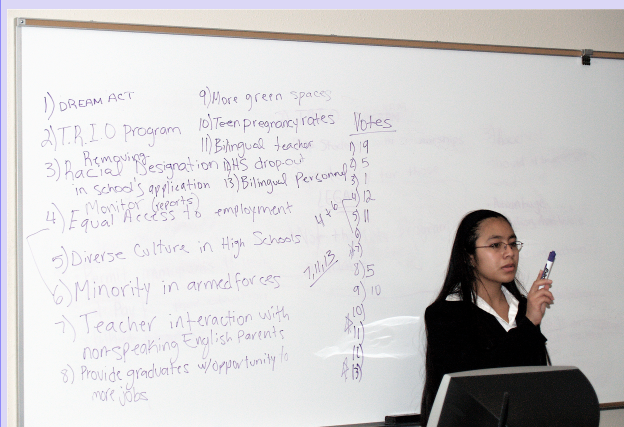 1) DREAM ACT
2) T.R.I.O Program
Removing
3) Racial Designation
in school's application
Monitor (reports)
4) Equal Access to employment
5) Diverse Culture in High Schools
6) Minority in armed forces
7) Teacher interaction with
non-speaking English Parents
8) Provide graduates w/opportunity to
more jobs
9) More green spaces
10) Teen pregnancy rates
11) Bilingual teacher
12) HS drop-out
13) Bilingual Personnel
4 + 6
7, 11, 13
Votes
1) 19
2) 5
3) 1
4) 12
5) 11
6)
7)
8) 5
9) 10
10)
11)
12)
13)